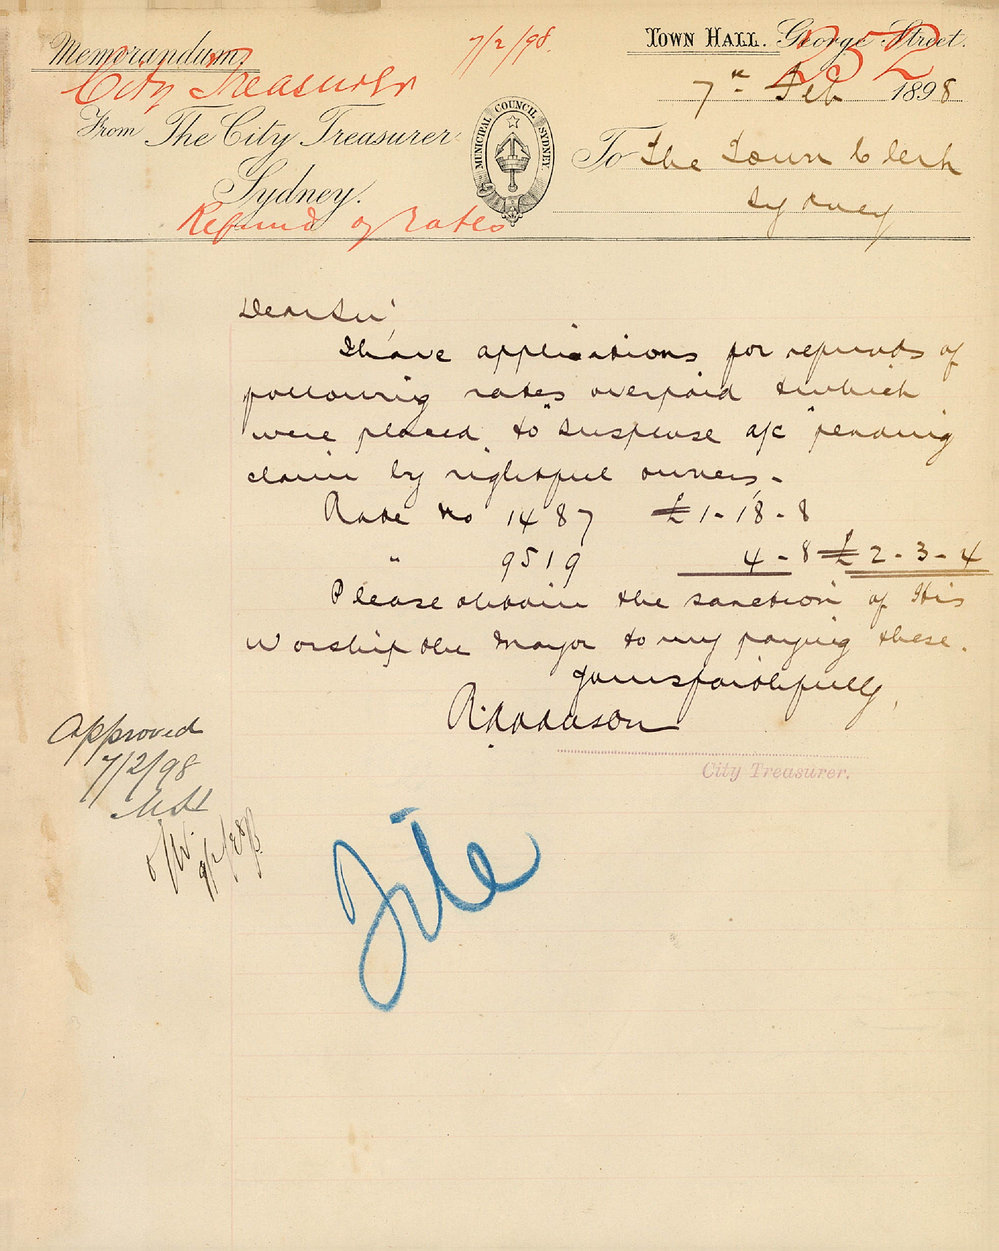 Memorandum,
City Treasurer
7/2/98.
Town Hall. George Street.
252
7th Feb 1898
From The City Treasurer
Sydney.
MUNICIPAL COUNCIL SYDNEY.
To The Town Clerk
Sydney
Refund of Rates
Dear Sir,
I have applications for refunds of
following rates overpaid & which
were placed to "Suspense a/c" pending
claim by rightful owners,-
Rate No 1487 £1-18-8
" 9519 4-8 £2-3-4
Please obtain the sanction of His
Worship the Mayor to my paying these.
Yours faithfully,
City Treasurer.
Approved
7/2/98
File